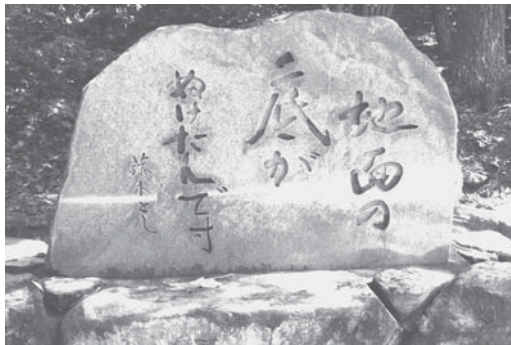 地面の
底が
ぬけたんです
藤本とし